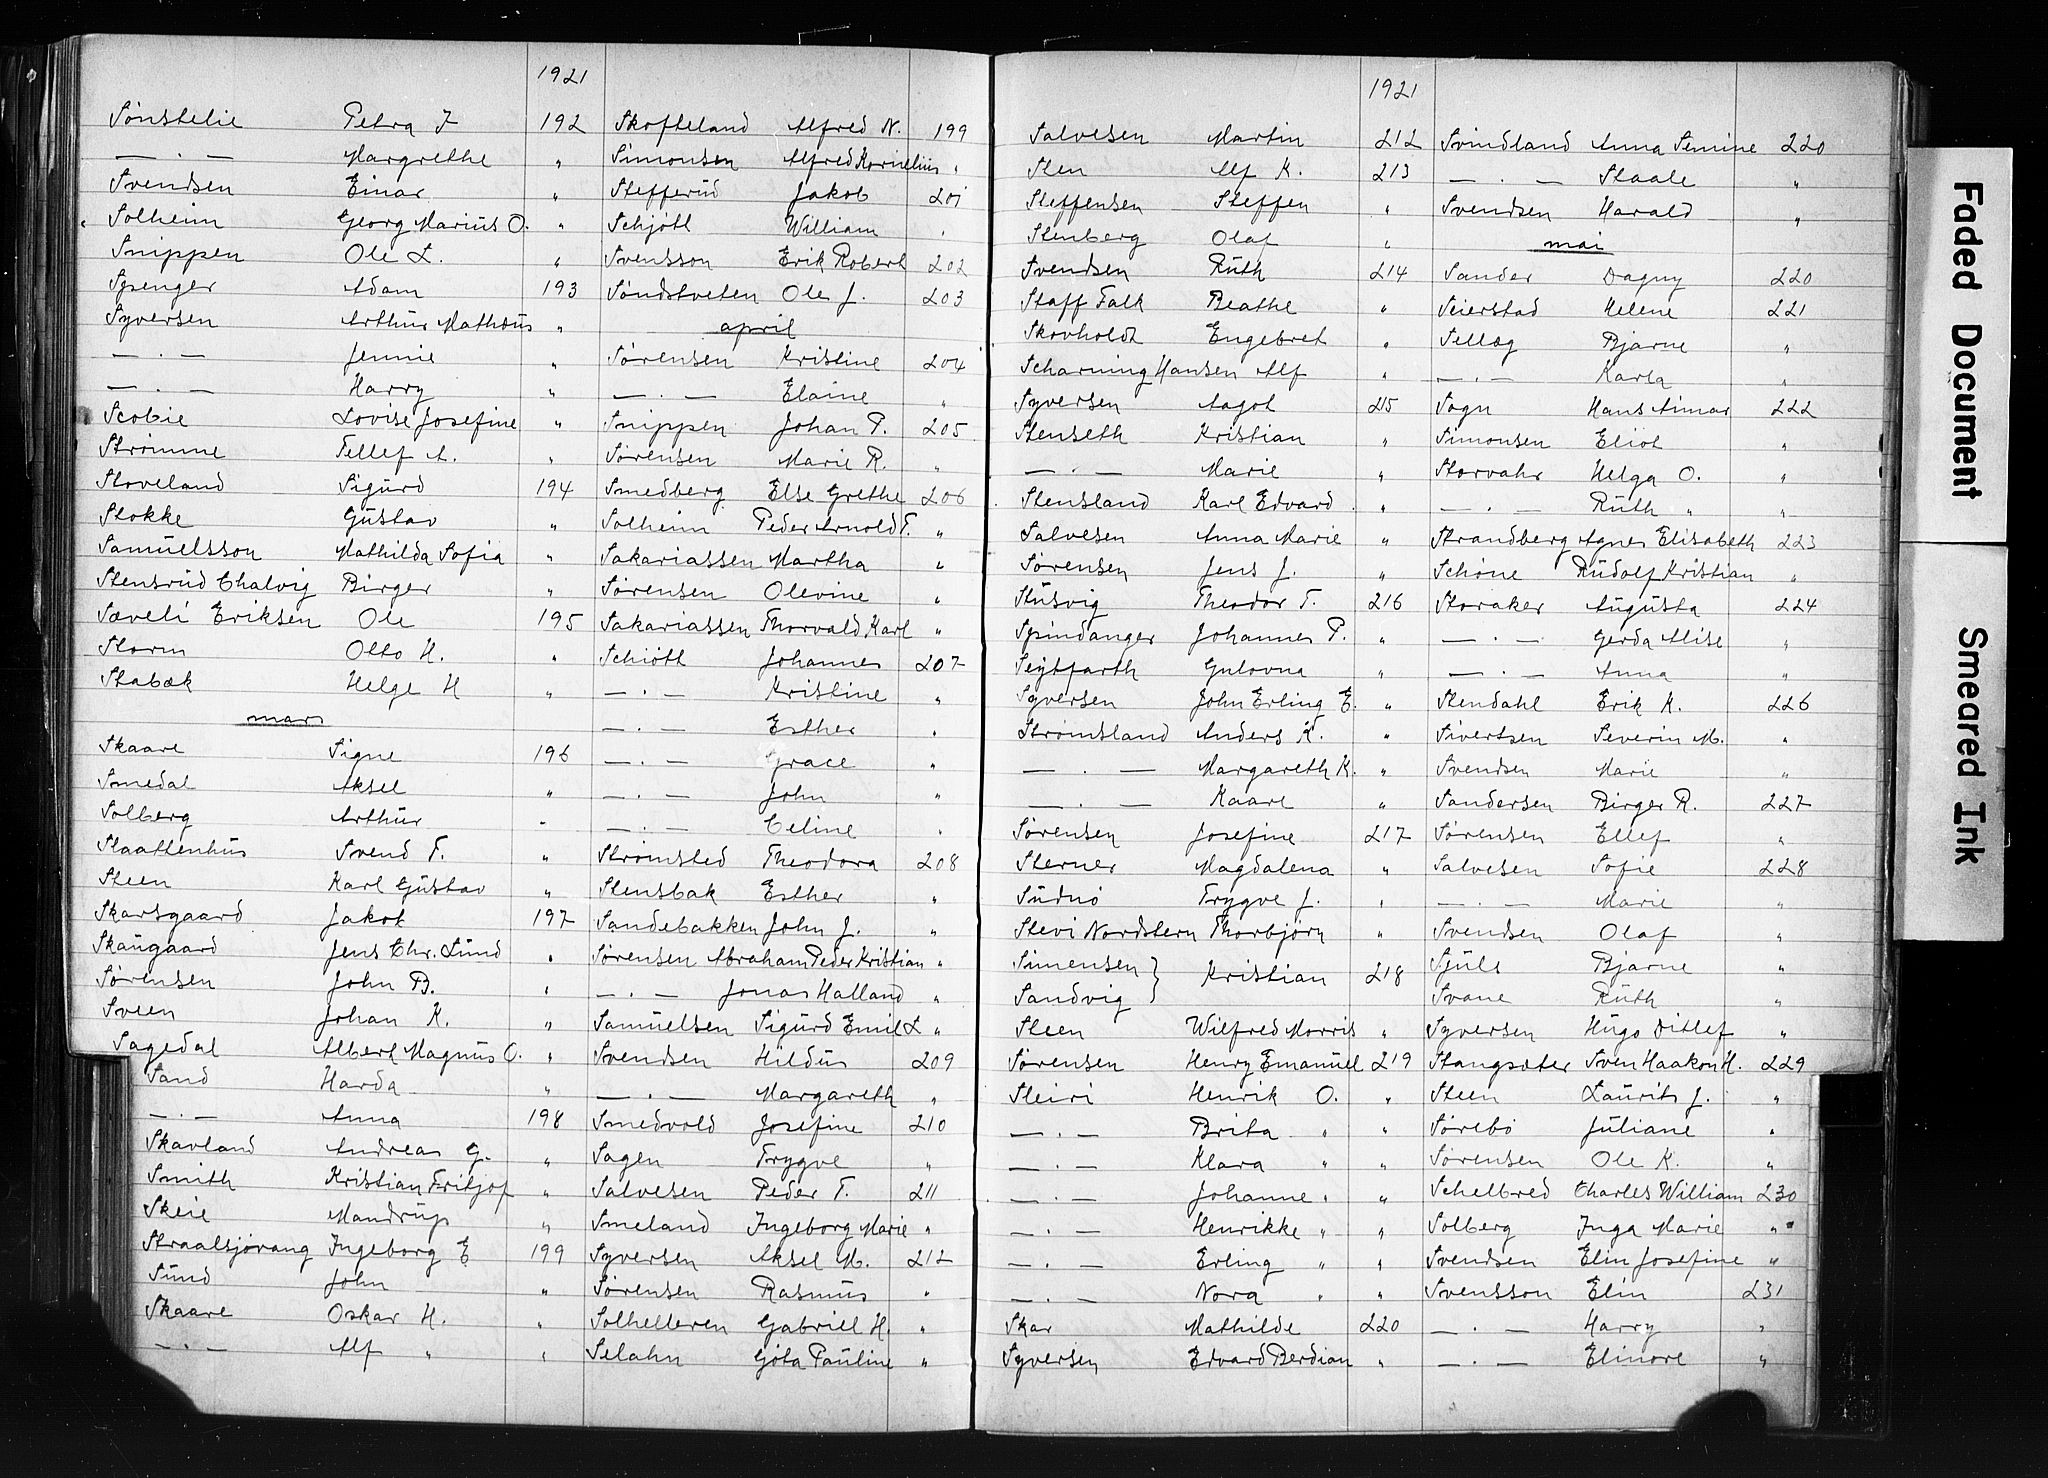 1921
Sønstelie Petra J 192
— . — Margrethe "
Svendsen Einar "
Solheim Georg Marius O. "
Snippen Ole L. "
Spenger Adam 193
Syversen Arthur Mathæus "
— . — Jennie "
— . — Harry "
Scobie Lovise Josefine "
Strømme Tellef A. "
Stoveland Sigurd 194
Stokke Gustav "
Samuelsson Mathilda Sofia "
Stensrud Chalvig Birger "
Sæveli Eriksen Ole 195
Storm Otto H. "
Stabæk Helge H "
mars
Skaare Signe 196
Smedal Aksel "
Solberg Arthur "
Slaattenhus Svend T. "
Steen Karl Gustav "
Skarsgaard Jakob 197
Skaugaard Jens Chr. Lund "
Sørensen John B. "
Sveen Johan K. "
Sagedal Albert Magnus O. "
Sand Harda "
— . — Anna 198
Skavland Andreas G. "
Smith Kristian Fritjof "
Skeie Mandrup "
Straalsjøvang Ingeborg E 199
Sund John "
Skaare Oskar H. "
— . — Alf " "
Skofteland Alfred N. 199
Simonsen Alfred Kornelius "
Stefferud Jakob 201
Schjøtt William "
Svensson Erik Robert 202
Søndstveten Ole J. 203
april
Sørensen Kristine 204
— . — Elaine "
Snippen Johan P. 205
Sørensen Marie R. "
Smedberg Else Grethe 206
Solheim Peder Arnold T. "
Sakariassen Martha "
Sørensen Olevine "
Sakariassen Thorvald Karl "
Schiøtt Johannes 207
— . — Kristine "
— . — Esther "
— . — Grace "
— . — John "
— . — Celine "
Strømsted Theodora 208
Stensbak Esther "
Sandebakken John J. "
Sørensen Abraham Peder Kristian "
— . — Jonas Halland "
Samuelsen Sigurd Emil L "
Svendsen Hildus 209
— . — Margareth "
Smedvold Josefine 210
Sagen Trygve "
Salvesen Peder T. 211
Smeland Ingeborg Marie "
Syversen Aksel M. 212
Sørensen Rasmus "
Solhelleren Gabriel H. "
Selahn Göta Pauline "
1921
Salvesen Martin 212
Sten Alf K. 213
Steffensen Steffen "
Stenberg Olaf "
Svendsen Ruth 214
Staff Falk Beathe "
Skovholdt Engebret "
Scharning Hansen Alf "
Syversen Aagot 215
Stenseth Kristian "
— . — Marie "
Stensland Karl Edvard "
Salvesen Anna Marie "
Sørensen Jens J. "
Stusvig Theodor T. 216
Spindanger Johannes P. "
Seytfarth Gulovna "
Syversen John Erling E. "
Strømsland Anders K. "
— . — Margareth K. "
— . — Kaare "
Sørensen Josefine 217
Sterner Magdalena "
Sudnø Trygve J. "
Slevi Nordstern Thorbjørn "
Simensen }
Sandvig } Kristian 218
Steen Wilfred Morris "
Sørensen Henry Emanuel 219
Sleiri Henrik O. "
— . — Brita " "
— . — Klara " "
— . — Johanne " "
— . — Henrikke " "
— . — Erling " "
— . — Nora " "
Skar Mathilde 220
Syversen Edvard Berdian "
Svindland Anna Semine 220
— . — Staale "
Svendsen Harald "
mai
Sander Dagny 220
Seierstad Helene 221
Sellæg Bjarne "
— . — Karla "
Sogn Hans Aimar 222
Simonsen Eliot "
Storvahr Helga O. "
— . — Ruth " "
Strandberg Agnes Elisabeth 223
Schöne Rudolf Kristian "
Storaker Augusta 224
— . — Gerda Alise "
— . — Anna "
Stendahl Erik K. 226
Sivertsen Severin M. "
Svendsen Marie "
Sandersen Birger R. 227
Sørensen Ellef "
Salvesen Sofie 228
— . — Marie "
Svendsen Olaf "
Sjuls Bjarne "
Svane Ruth "
Syversen Hugo Ditlef "
Stangsæter Sven Haakon H. 229
Steen Laurits J. "
Sørebö Juliane "
Sørensen Ole K. "
Schelbred Charles William 230
Solberg Inga Marie "
Svendsen Elin Josefine "
Svensson Elin 231
— . — Harry "
— . — Elinore "
Faded Document
Smeared Ink